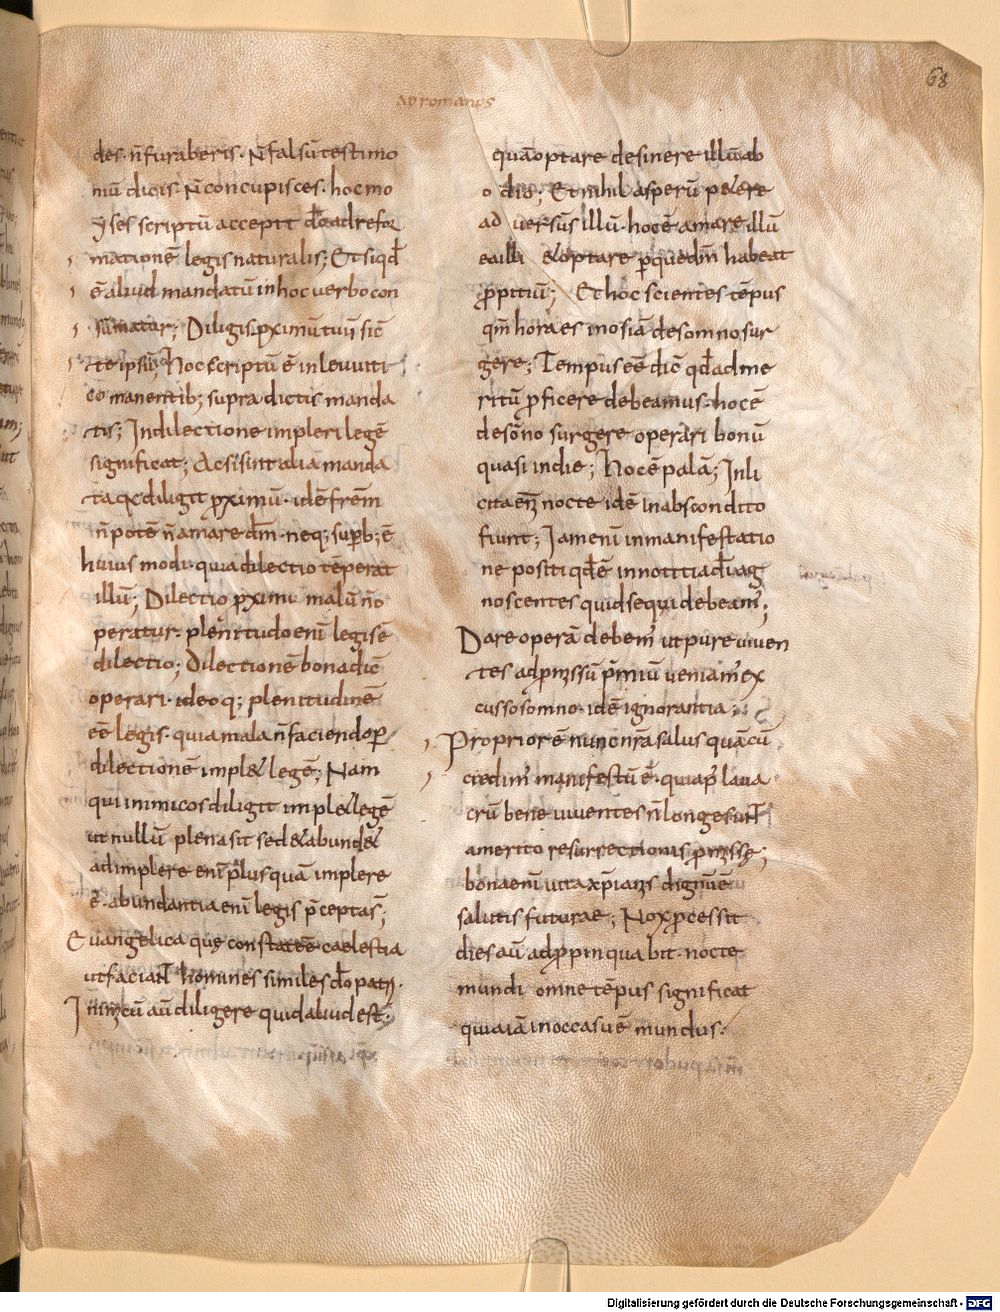 68
AD romanos
des · n̄ furaberis · N̄ falsū testimo
niū dicis · N̄ concupisces · hoc mo
yses scriptū accepit d̄o ad refor
mationē legis naturalis; Et si qd̄
ē aliud mandatū in hoc uerbo con
sūmatur; Diligis pximū tuū sic̄
te ipsū; Hoc scriptū ē in leuuiti
co manentib; supra dictis manda
tis; In dilectione impleri legē
significat; Ac si sint alia manda
ta qc diligit pximū · idē frēm
n̄ potē n̄ amare dm̄ · neq; supb; ē
huius modi · quia dilectio tēperat
illū; Dilectio pximi malū n̄ o
peratur · plenitudo enī legis ē
dilectio; Dilectionē bona dic̄
operari · ideoq; plenitudinē
eē legis · quia mala n̄ faciendo p
dilectionē impl& legē; Nam
qui inimicos diligit impl& legē
ut nullū plena sit sed & abund&
adimplere enī plus quā implere
ē · abundantia enī legis p̄cepta s̄;
Euangelica quę constat eē caelestia
ut faciat homines similes d̄o patri ·
Inimicū aū diligere quid aliud est ·
quā optare desinere illū ab
odio; Et nihil asperū petere
ad uersūs illū · hoc ē amare illū
ea illi & optare p quę dm̄ habeat
ppitiū; Et hoc scientes tēpus
qm̄ hora es ī nos iā de somno sur
gere; Tempus eē dic̄ qd̄ ad me
ritū pficere debeamus · hoc ē
de sōno surgere operari bonū
quasi in die; Hoc ē palā; Inli
cita enī nocte idē in abscondito
fiunt; Iam enī in manifestatio
nē positi qd̄ ē in notitia d̄i ag
noscentes quid sequi debeam';
Dare operā debem' ut pure uiuen
tes ad pmissū p̄miū ueniam' ex
cusso somno · idē ignorantia;
Proprior ē nunc nr̄a salus quā cū
credim' manifestū ē · quia p' laua
crū bene uiuentes n̄ longe sunt
a merito resurrectionis pmisse;
bona enī uita xp̄ianis dignū ē
salutis futurae; Nox pcessit
dies aū adppinquabit · nocte
mundi omne tēpus significat
quia iā in occasu ē mundus ·